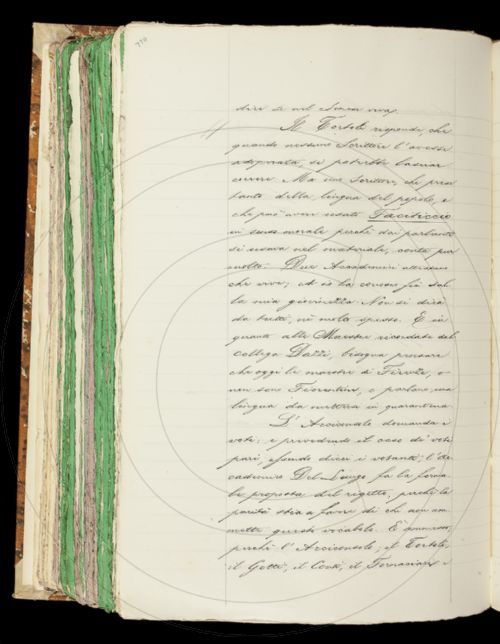 dire
Il Tortoli risponde, che
quando nessuno Scrittore l'avesse
adoprata, si potrebbe lasciar
correre. Ma uno Scrittore, che pren
tanto della lingua del popolo, e
che può aver usato Taccticcio
in senso morale perchè dai parlanti
si usava nel materiale, conta pur
molto. Due Accademici attestano
che vive; ed io la conosco fin dal
la mia giovinezza. Non si dirà
da tutti, nè molto spesso. E in
quanto alle Maestre ricordate dal
Collega Dazzi, bisogna pensare
che oggi le maestre di Firenze, o
non sono Fiorentine, o parlano una
lingua da mettersi in quarantena.
L'Arciconsolo domanda i
voti; e prevedendo il caso di voti
pari, essendo dieci i votanti, l'Ac
cademico Del Lungo fa la forma
le proposta del rigetto; perchè la
parità stia a favore di chi non am
mette questo vocabolo. È ammesso,
perchè l'Arciconsolo, il Tortoli,
il Gotti, il Conti, il Tommasini e